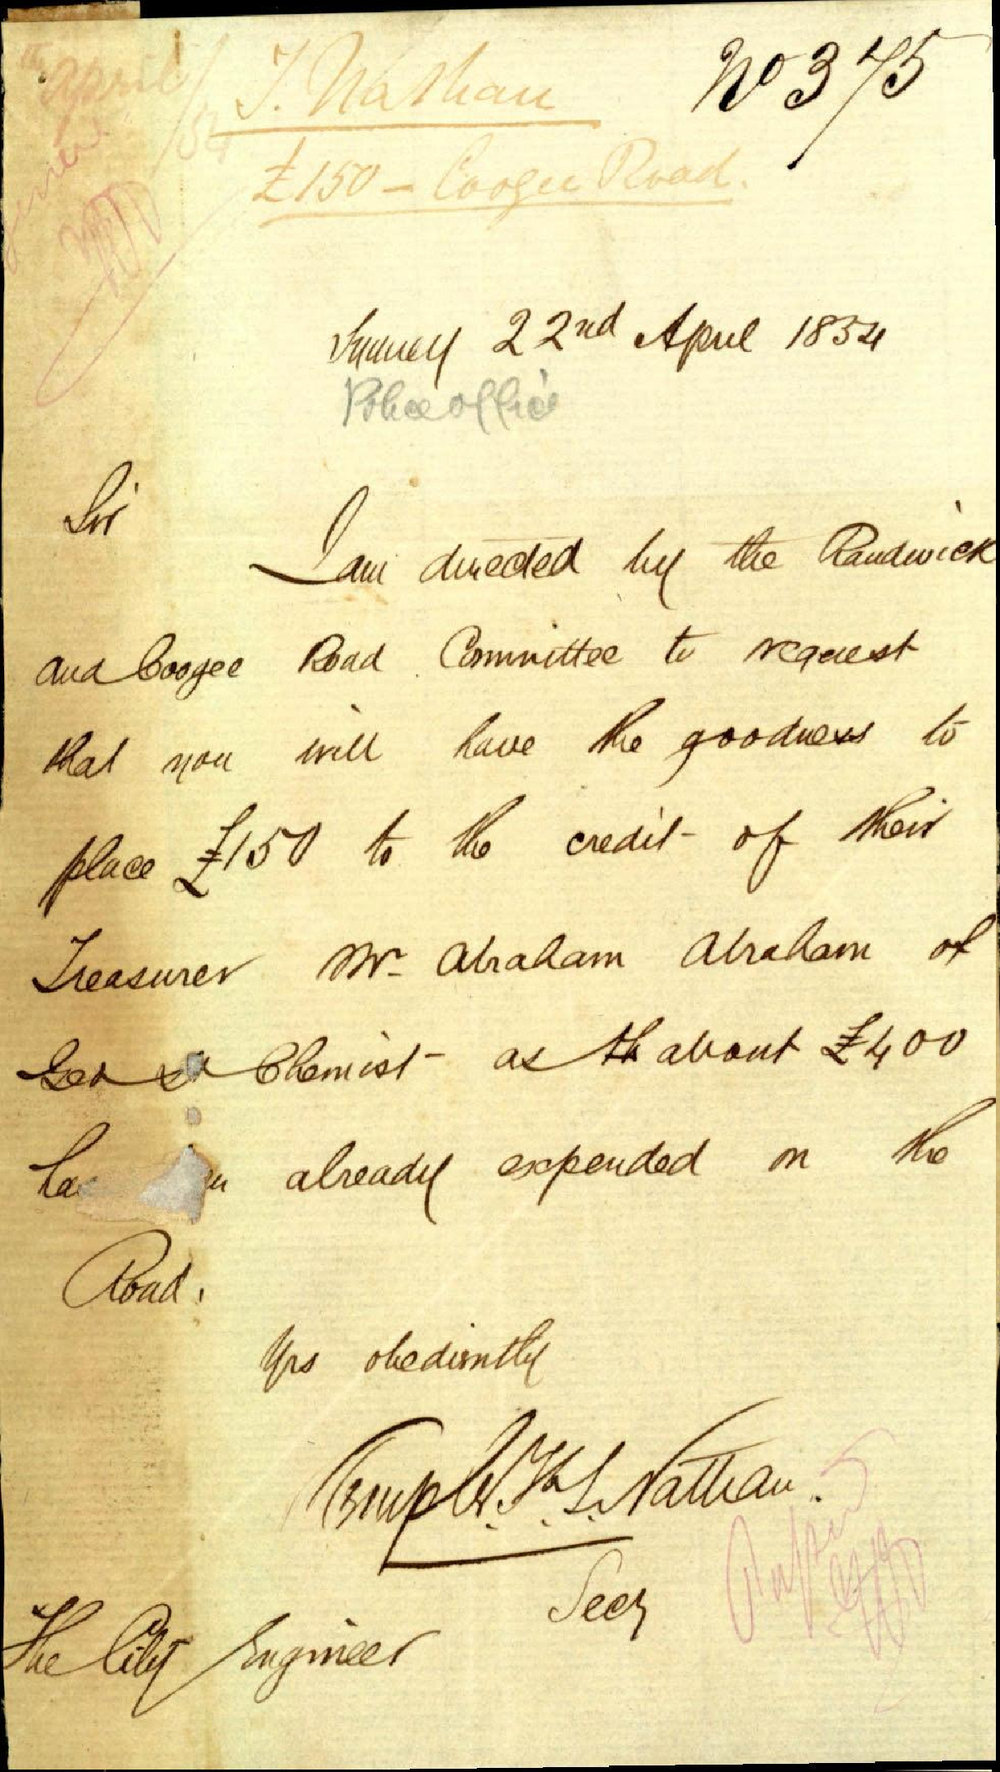 No 375
T. Nathan
£150 - Coogee Road.
April
/54
Sydney 22nd April 1854
Police office
Sir
I am directed by the Randwick
and Coogee Road Committee to request
that you will have the goodness to
place £150 to the credit of their
Treasurer Mr Abraham Abraham of
Geo St Chemist as th about £400
has en already expended on the
Road.
Yrs obediently
Temple Nathan.
Secy
The City Engineer